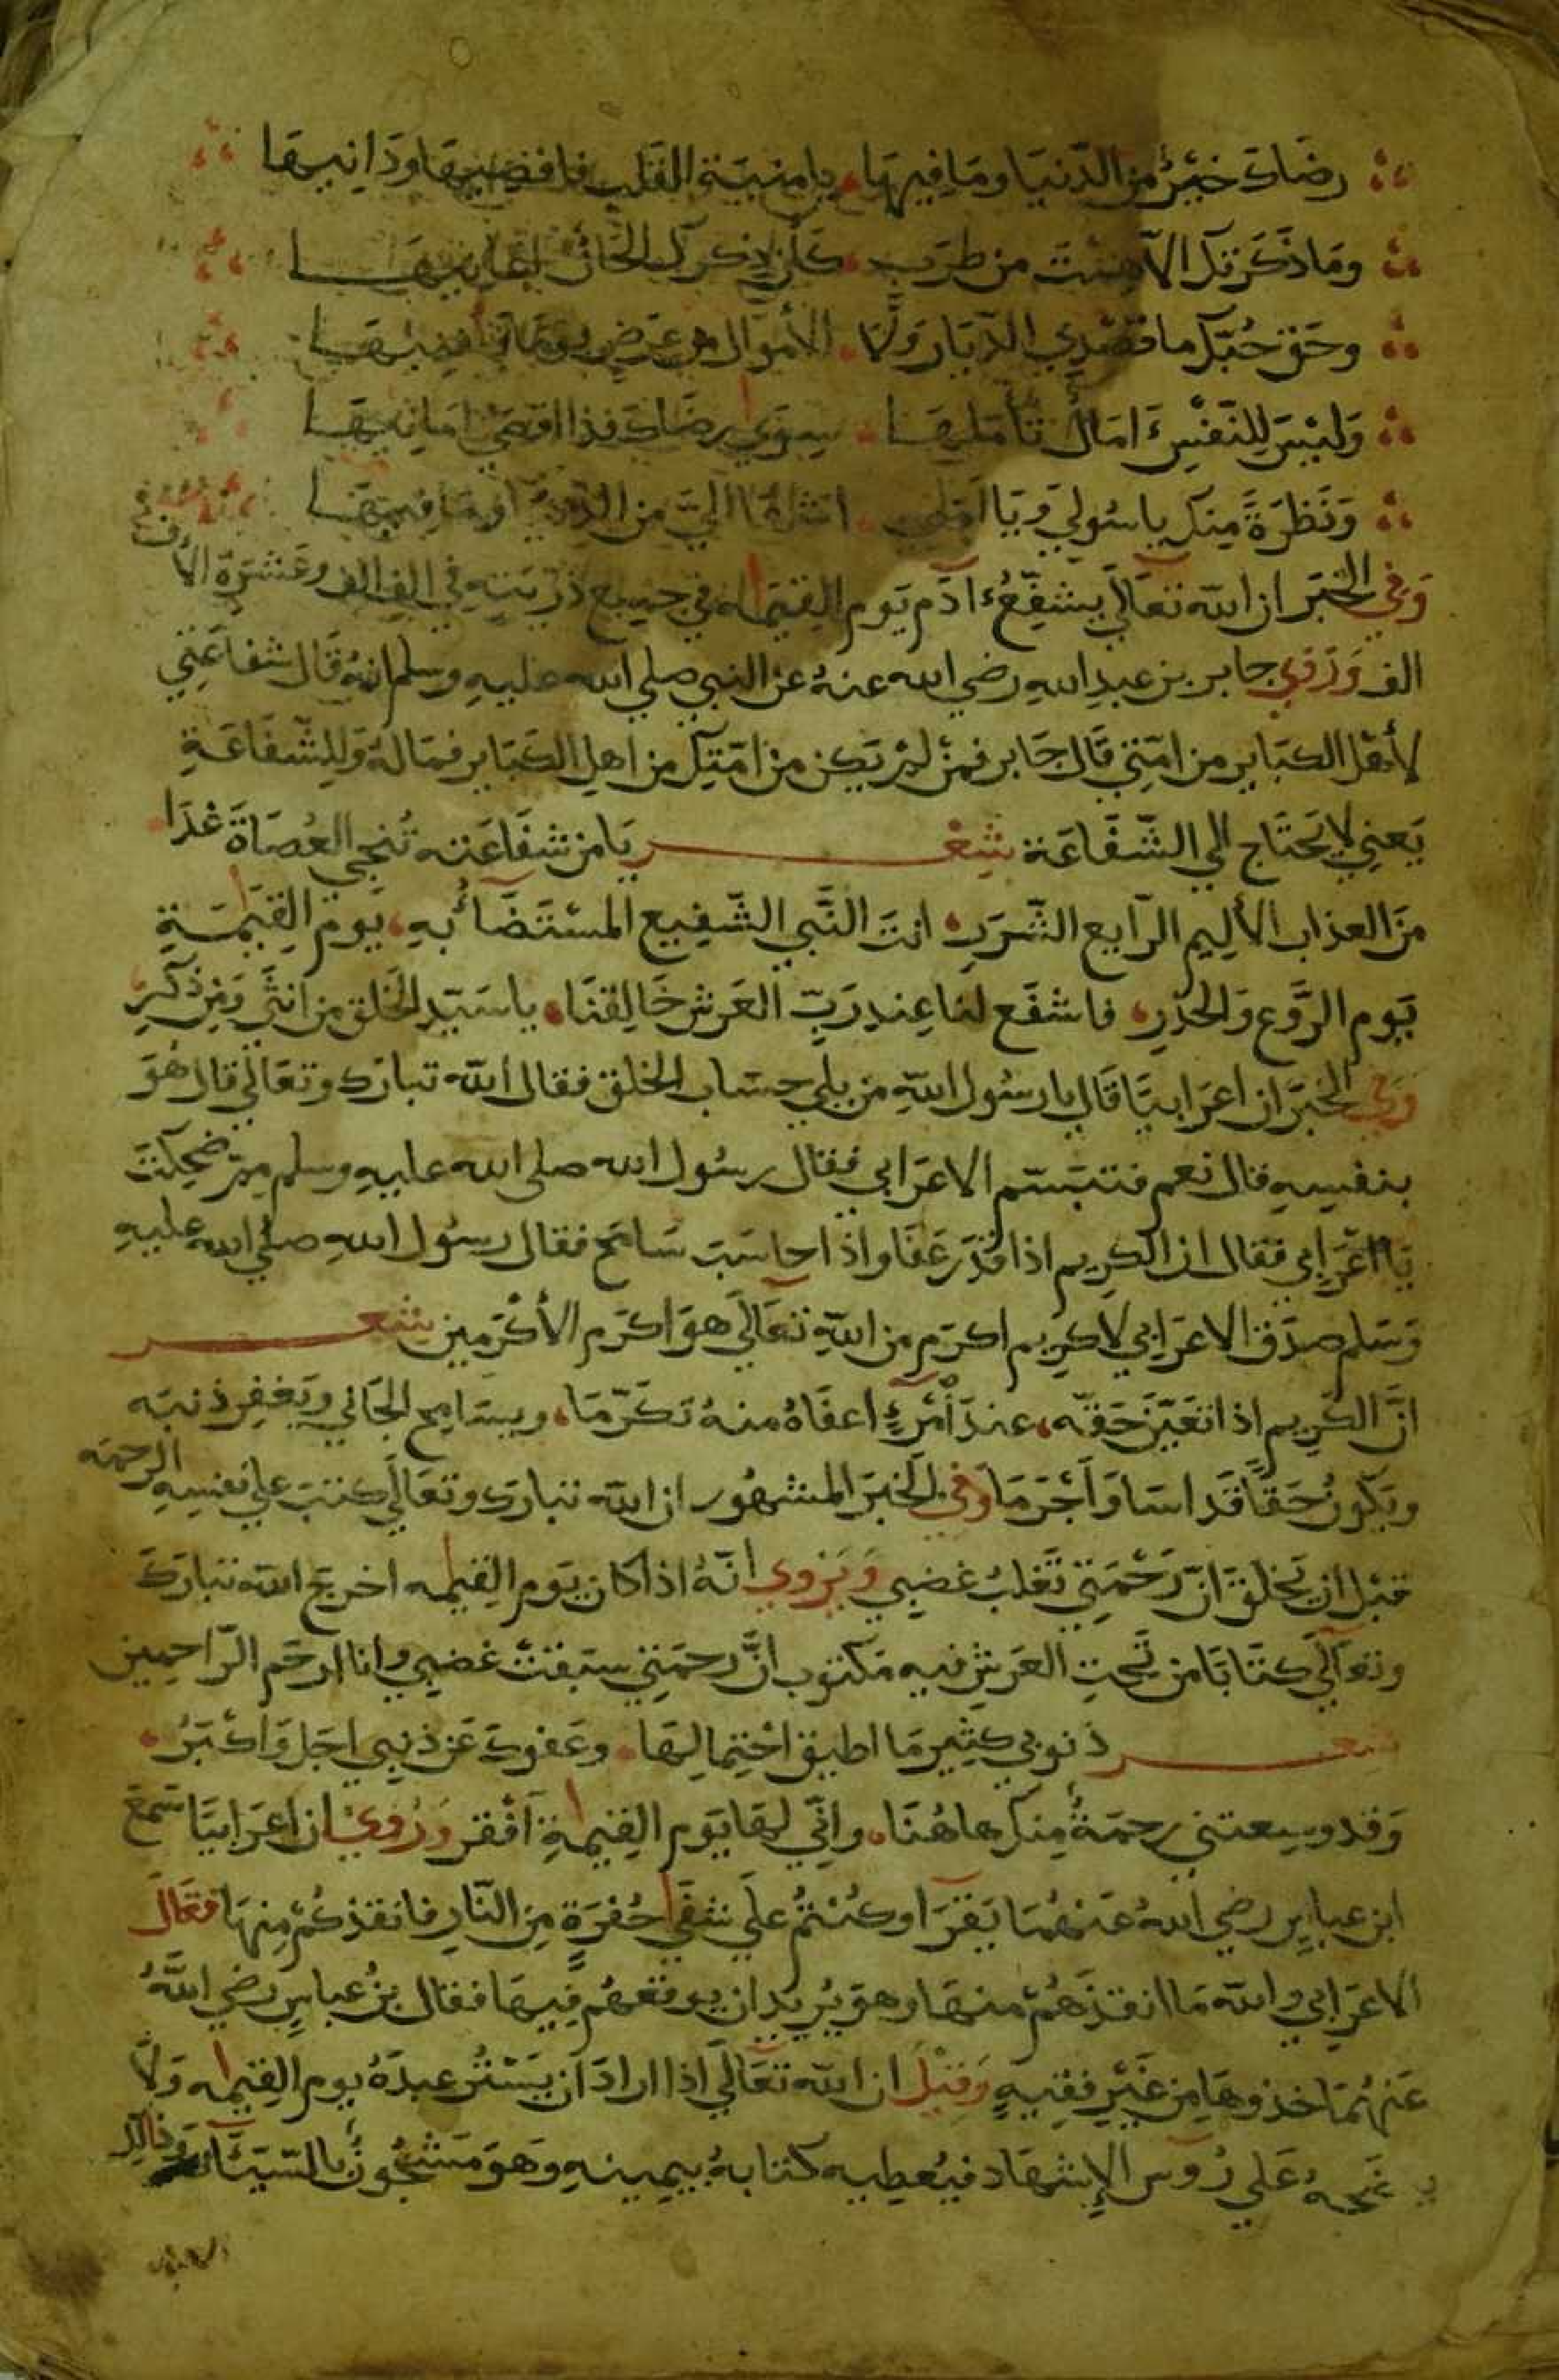 رضَاكَ خيْرٌ منَ الدّنيَا ومَا فِيهَا يا منيَة القَلب قاصيهَا ودَانيهَا
ومَا ذَكَرتكَ الا همْتُ من طرَب كأن ذكرك الحَان اغانيهَا
وحَق حُبّكَ ما قصْدِي الدّيَار وَلَا الأموَال من عَرَض يومًا فافنيهَا
وَليْسَ لِلنّفْسِ امَالٌ تأمّلهَا سِوَى رضَاكَ فذا اقصَى امَانيهَا
وَنَظرَةً مِنكَ يا سُولي وَيَا امَلي اشهَا اليَّ من الدّنيَا ومَا فيهَا
وَفي الخبَر ان الله تعَالَى يشَفِّعُ آدَم يَوم القيمَه في جميع ذرّيته في الف الف وعَشَرَة الآف
الف وَرَوَي جابر بن عبدِ اللهِ رضي الله عنهُ عن النبي صلي الله عليهِ وسلم انهُ قَال شفاعَتِي
لأهْل الكبَاير من امّتِي قَال جَابر فمنْ لمْ يَكن منْ امّتِكَ من اهلِ الكبَاير فمَا لهُ وَلِلشّفَاعَةِ
يَعنِي لا يَحتَاج الي الشّفَاعَة شِعْـــر يَا من شفَاعَته تُنجي العُصَاةَ غدًا
منَ العذاب الأليم الرّايع الشّررِ انتَ النَّبي الشّفِيع المسْتَضَآءُ بِهِ يَوم القِيَامَةِ
يَوم الرَّوعِ وَالحذرِ فاشفَع لنا عِندَ رَبّ العَرش خَالِقنَا يا سَيّد الخَلق من انثَي وَمِن ذكَرِ
وَفي الخبَر ان اعرَابيًا قَال يا رسُول اللهِ من يلي حِسَاب الخلق فقال الله تبارك وتعَالَي قال هُوَ
بنفسِهِ قال نعم فتبَسّم الاعرَابي فقال رسُول الله صلي الله عليهِ وسلم ممّ ضحِكْتَ
يَا اعْرَابي فقال ان الكريم اذا قدَر عَفَا واذَا حاسَبَ سَامح فقال رسُول اللهِ صلي الله عليهِ
وَسَلم صدَق الاعرَابي لا كريم اكرَم من اللهِ تعَالَي هوَ اكرَم الأكرَمِين شعـــر
انَّ الكريم اذا تعَيّن حَقّه عندَ أمْرِءٍ اعفَاهُ منهُ تكَرّمَا ويسَامح الجَاني ويَغفِر ذنبَه
ويَكونُ حَقًا قد اسَا وَأجْرَمَا وَفي الخبَر المشهُور ان الله تبارك وتعَالَي كتبَ علي نفسِهِ الرحمَه
قبْل ان يَخلقَ انّ رَحْمَتِي تَغلبُ غضبِي وَيَرْوِي انّهُ اذا كان يَوم القيمَه اخرجَ الله تبَارَكَ
وتعَالَي كتَابًا من تَحتِ العَرش فيه مَكتوب انَّ رحمَتِي سبَقتْ غضبي وانا ارحَم الرّاحِمِين
شعـــر ذنوبي كثِير مَا اطيق احْتِمالهَا وعَفوكَ عَن ذنبِي اجَلّ وَاكْبَرُ
وَقد وسعتني رحمَةٌ مِنكَ هاهُنَا وانّي لهَا يَوم القيمَةِ أفْقر وَرُوِيَ ان اعرَابيًا سَمعَ
ابن عباسٍ رضي اللهُ عَنهُمَا يَقرَا وكُنْتُمْ علَي شفَا حُفرَةٍ مِن النّارِ فانقذكُمْ مِنهَا فقَالَ
الاعرَابي والله مَا انقذَهُمْ منهَا وهوَ يُريدُ ان يوقعَهُم فِيهَا فقال بنُ عباسٍ رضي اللهُ
عَنهُمَا خذوهَا مِن غَيْرِ فقيهٍ وَقِيْلَ ان الله تعَالَي اذا ارادَ ان يَسْتُر عبدَهُ يَوم القيمَه وَلَا
يفضحهُ عَلي رُؤسِ الإشهَاد فيُعطِيه كتابهُ بيمِينهِ وَهوَ مَشْحُونٌ بالسّيّئَات وَذالك